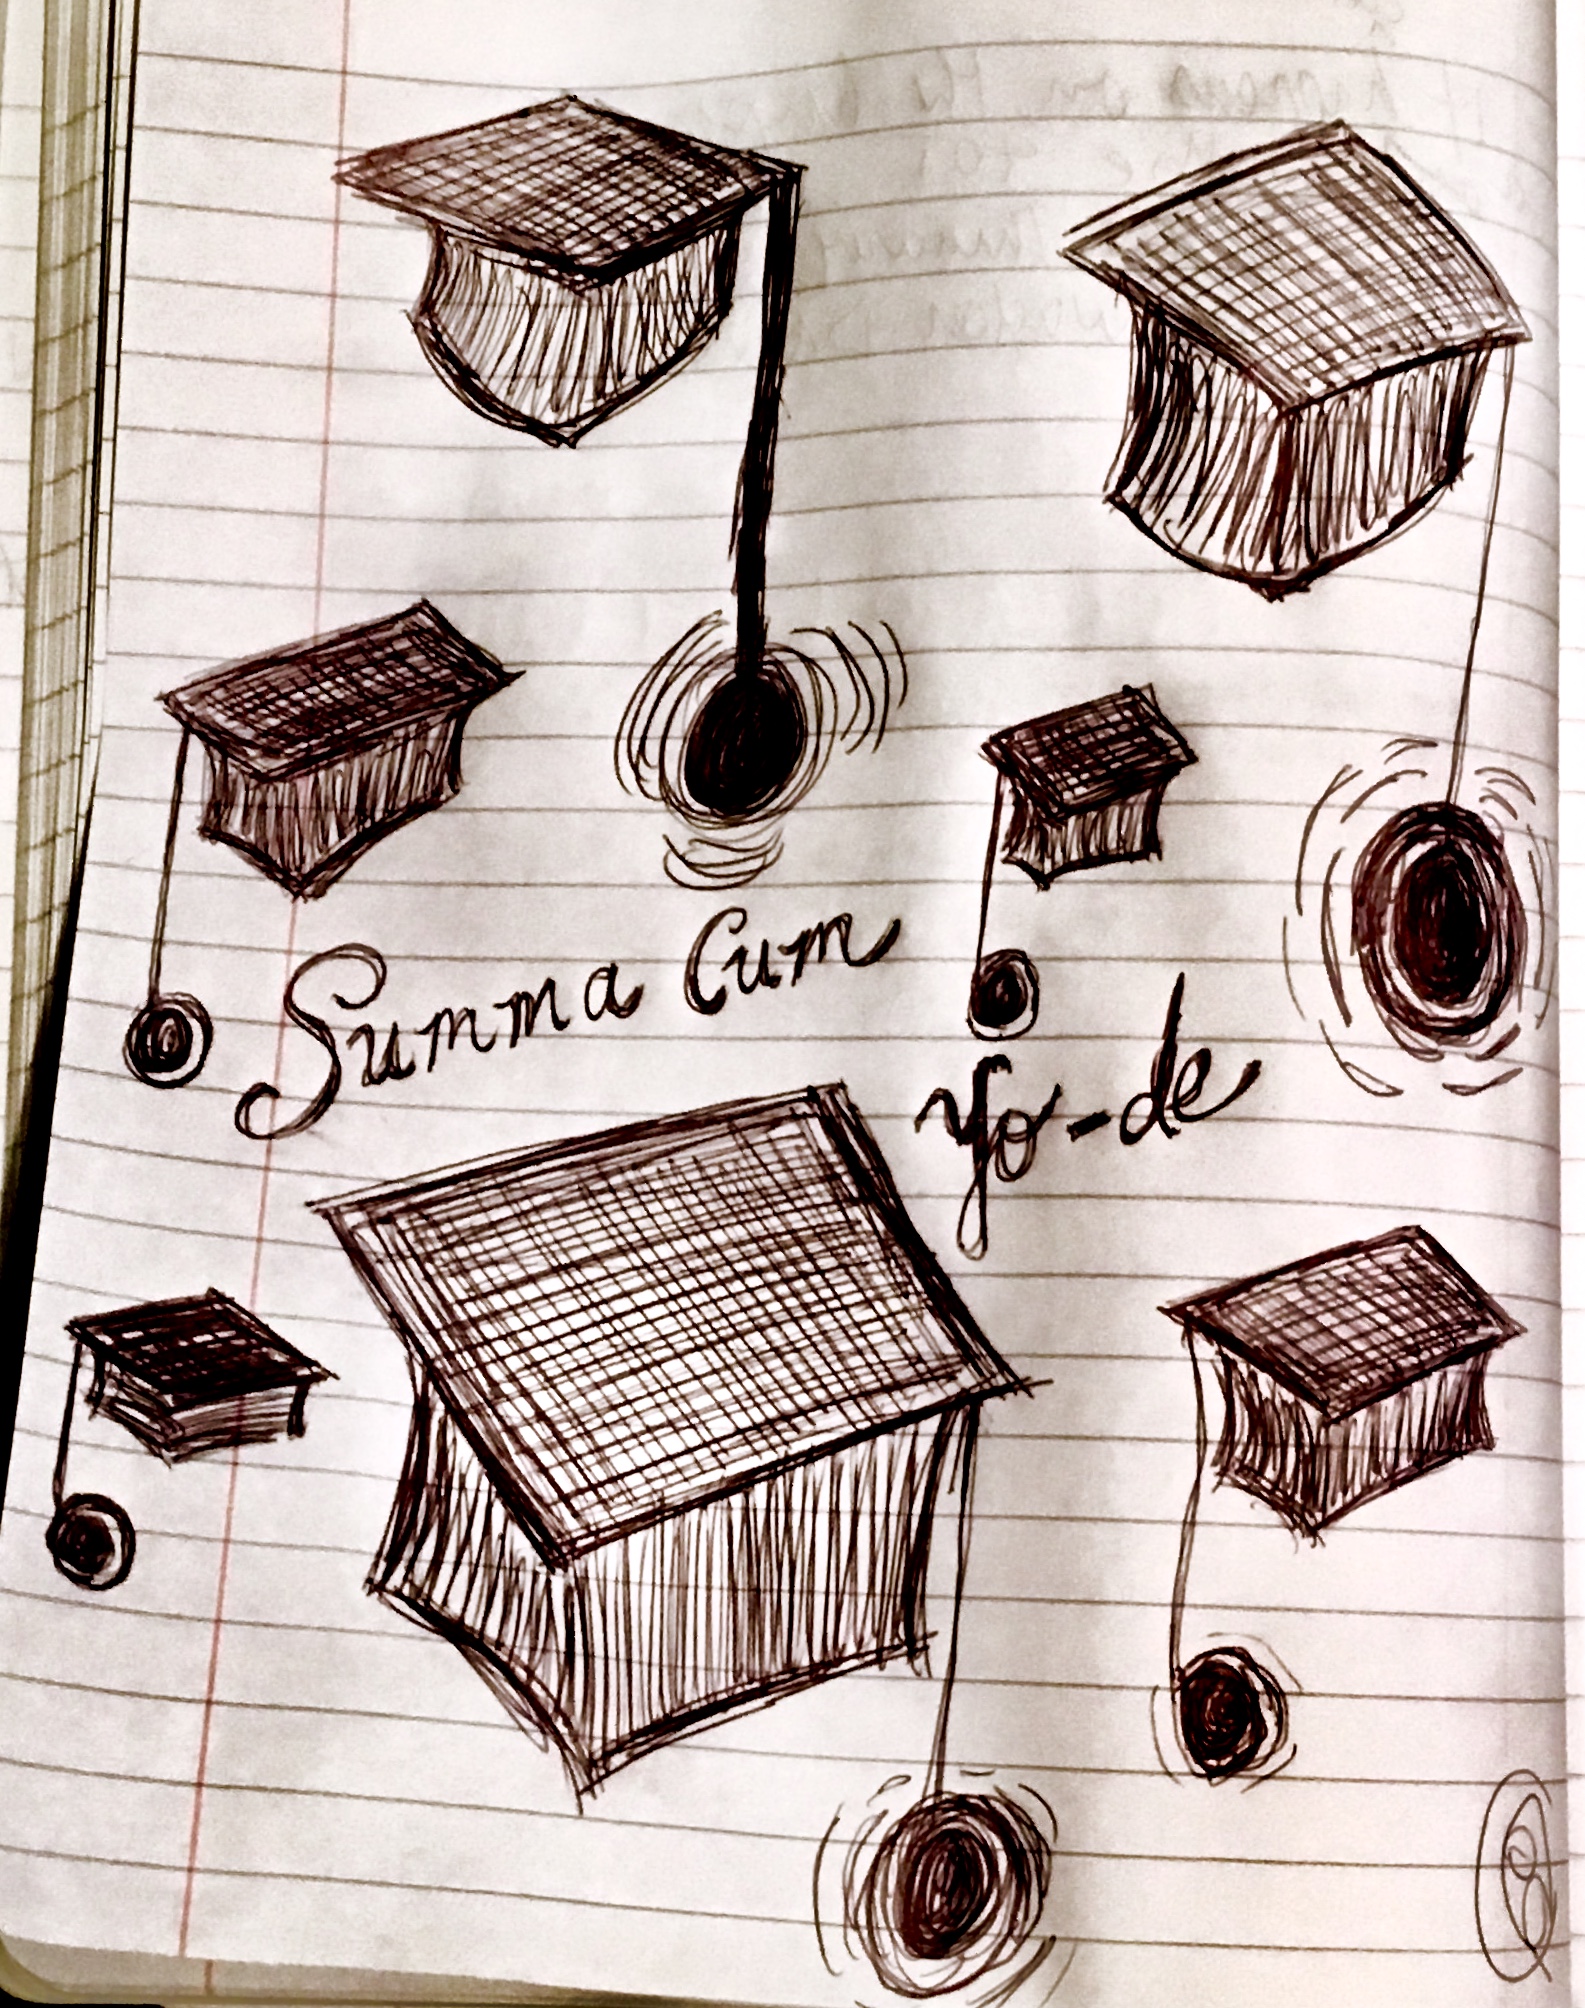 Summa Cum
Yo-de